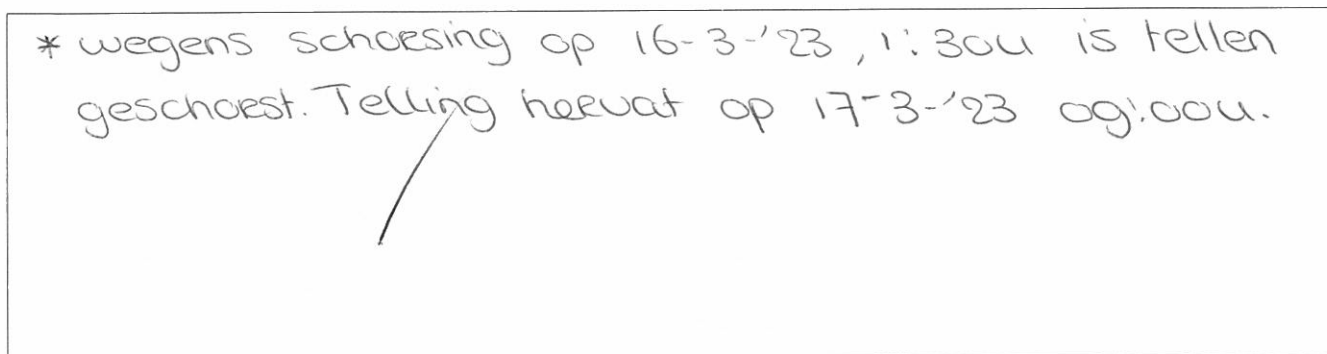 * wegens schorsing op 16-3-'23, 1:30u is tellen
geschorst. Telling hervat op 17-3-'23 09:00u.